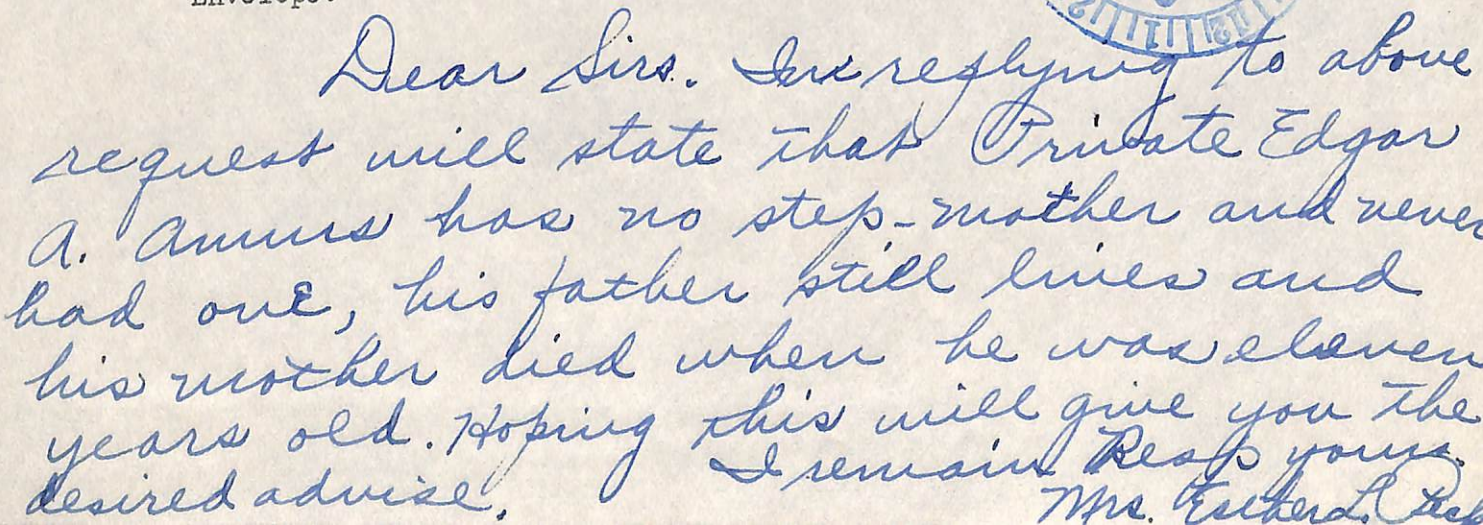 Dear Sirs. In replying to above
request will state that Private Edgar
A. Ammus has no step-mother and never
had one, his father still lives and
his mother died when he was eleven
years old. Hoping this will give you the
desired advise. I remain Resp yours.
Mrs. Esther L.